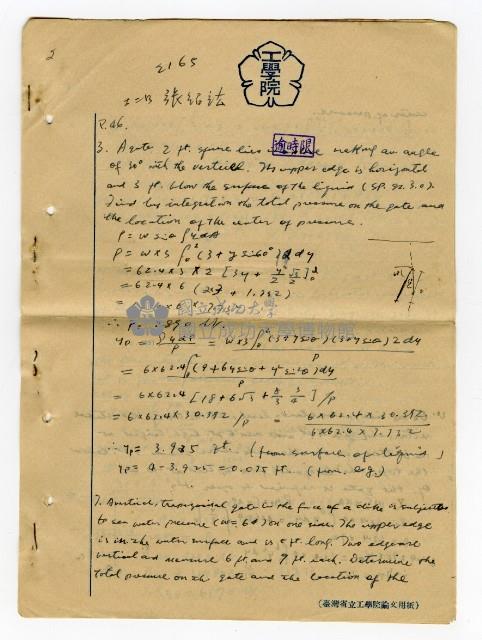 2
2165
工學院
張紹誌
P.46.
逾時限
3. A gate 2 ft. square lies in making an angle
of 30° with the vertical. Its upper edge is horizontal
and 3 ft. below the surface of the liquid (sp. gr. 3.0).
Find by integration the total pressure on the gate and
the location of the center of pressure.
P = w sinθ ∫ y dA
P = w × 3 ∫ (3 + y sin60°) 2 dy
= 62.4 × 3 × 2 [3y +
= 62.4 × 6
國立成功大學
國立成功大學博物館
= 6 × 62.4 ∫ (9 + 6y sinθ + y² sin²θ) dy
P
= 6 × 62.4 [18 + 6√3 + 8/3 · 3/4] / P
= 6 × 62.4 × 30.392 / P = 6 × 62.4 × 30.392
6 × 62.4 × 7.732
∴ yp = 3.925 ft. (from surface of liquid)
yp = 4 - 3.925 = 0.075 ft. (from c.g.)
7. A vertical, trapezoidal gate in the face of a dike is subjected
to sea water pressure (w = 64) on one side. The upper edge
is in the water surface and is 5 ft. long. Two edges are
vertical and measure 6 ft. and 9 ft. each. Determine the
total pressure on the gate and the location of the
(臺灣省立工學院論文用紙)